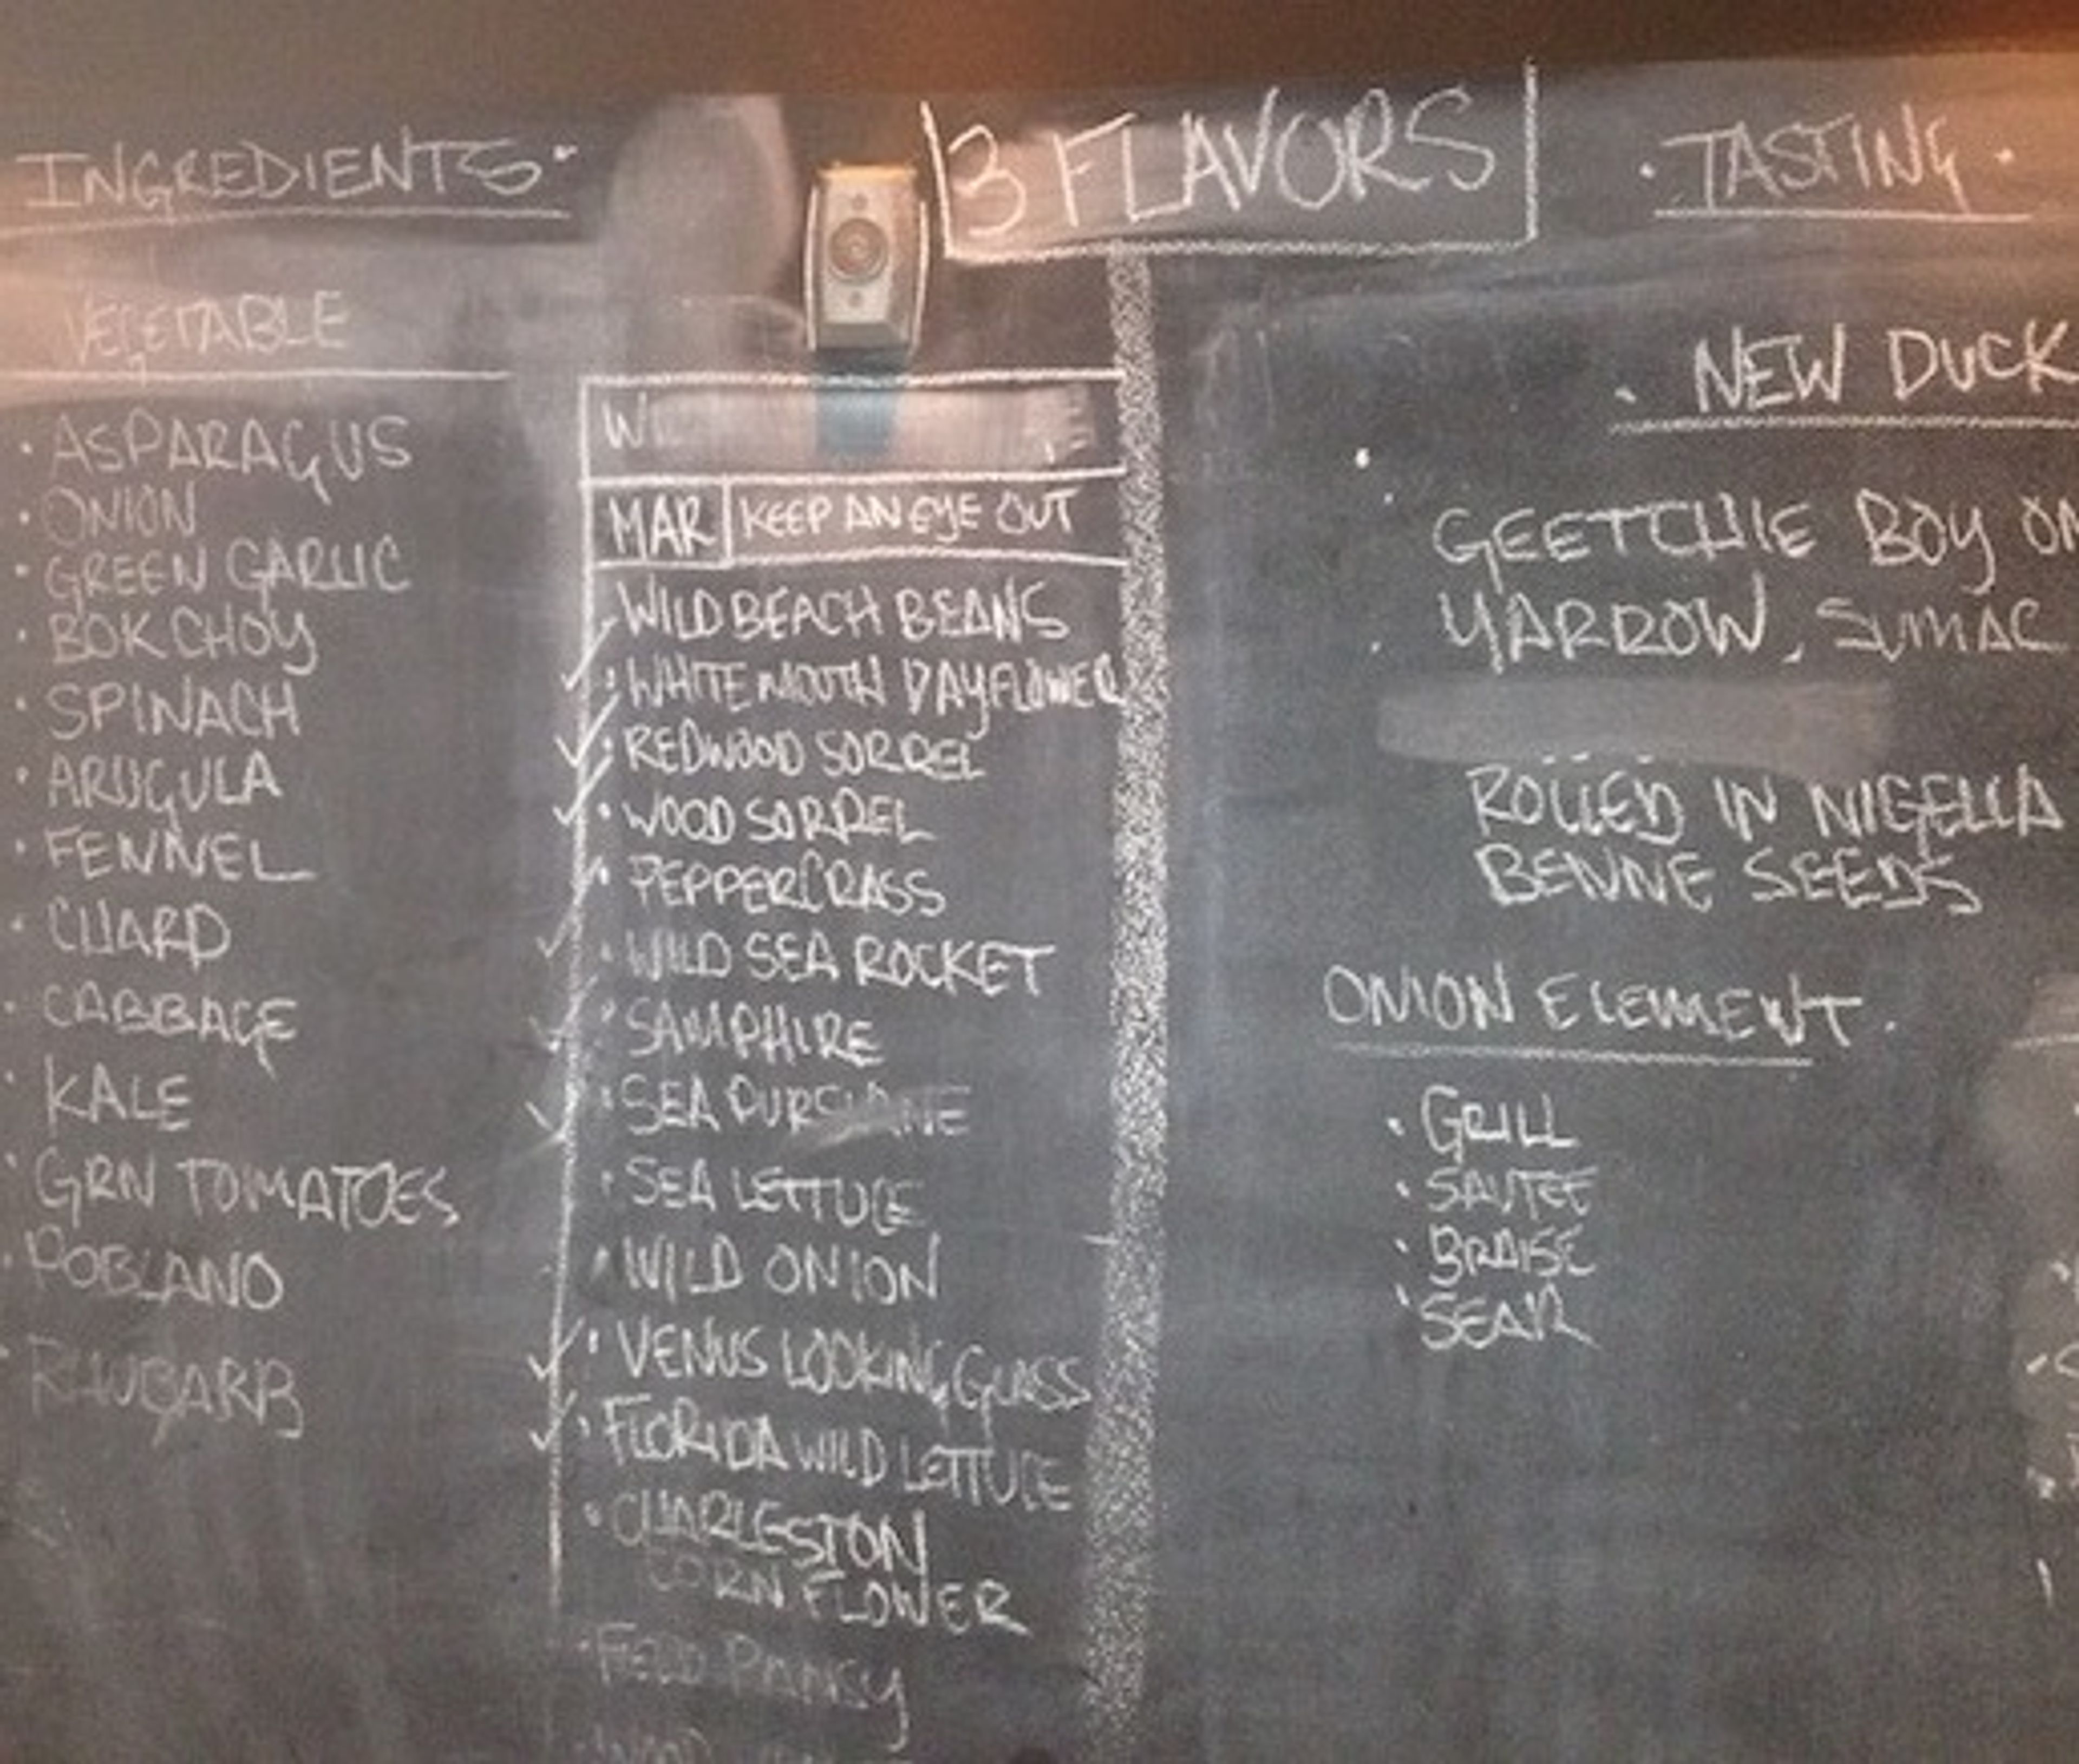 INGREDIENTS
VEGETABLE
· ASPARAGUS
· ONION
· GREEN GARLIC
· BOK CHOY
· SPINACH
· ARUGULA
· FENNEL
· CHARD
· CABBAGE
· KALE
· GRN TOMATOES
· POBLANO
· RHUBARB
3 FLAVORS
MAR KEEP AN EYE OUT
· WILD BEACH BEANS
· WHITEMOUTH DAYFLOWER
· REDWOOD SORREL
· WOOD SORREL
· PEPPERCRASS
· WILD SEA ROCKET
· SAMPHIRE
· SEA PURSLANE
· SEA LETTUCE
· WILD ONION
· VENUS LOOKING GLASS
· FLORIDA WILD LETTUCE
· CHARLESTON
CORN FLOWER
· FIELD PANSY
· TASTING ·
· NEW DUCK
GEETCHIE BOY
YARROW, SUMAC
ROLLED IN NIGELLA
BENNE SEEDS
ONION ELEMENT.
· GRILL
· SAUTEE
· BRAISE
· SEAR